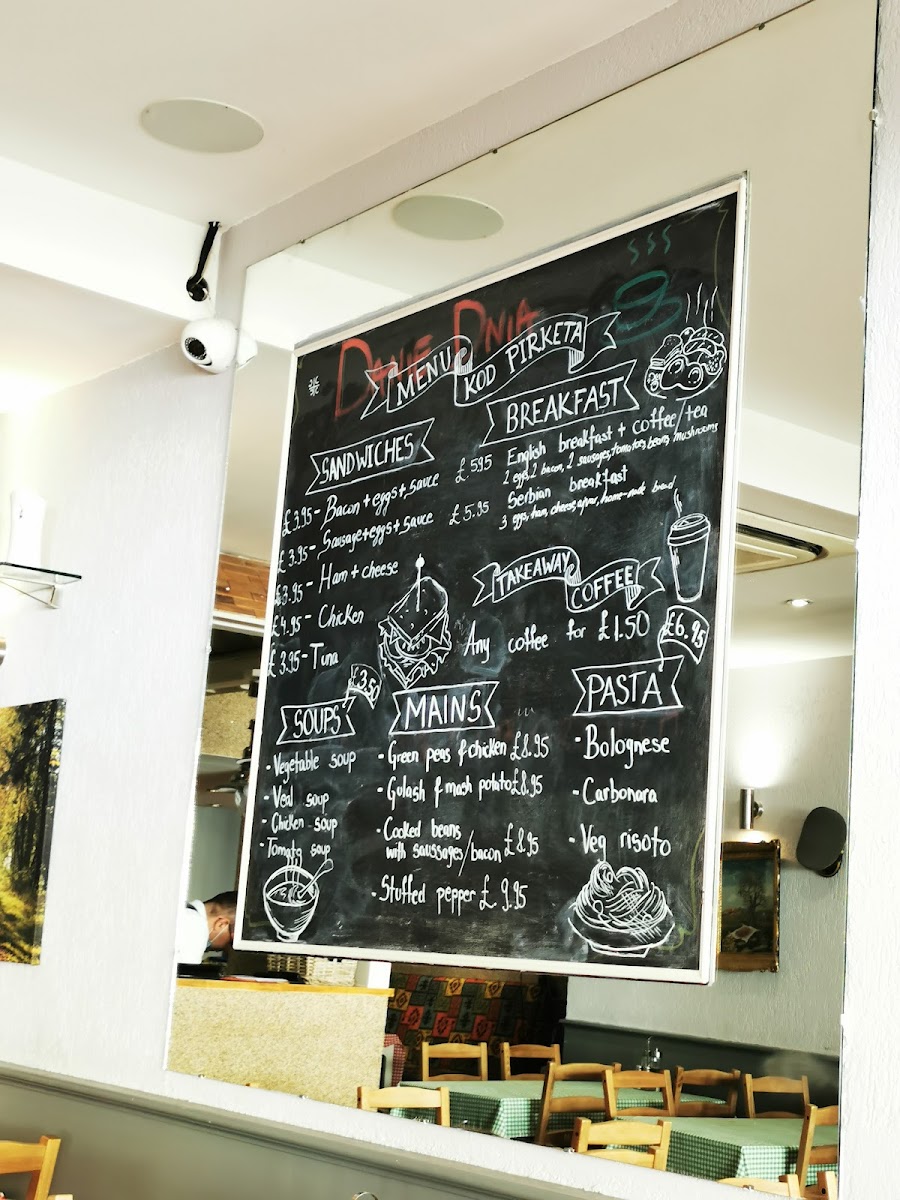 DANIE DNIA
MENU KOD PIRKETA
SANDWICHES
£3.95 - Bacon + eggs + sauce
£3.95 - Sausage + eggs + sauce
£3.95 - Ham + cheese
£4.95 - Chicken
£3.95 - Tuna
BREAKFAST
£5.95 English breakfast + coffee/tea
2 eggs, 2 bacon, 2 sausages, tomatoes, beans, mushrooms
£5.95 Serbian breakfast
3 eggs, ham, cheese, ajvar, home-made bread
TAKEAWAY COFFEE
Any coffee for £1.50
SOUPS £3.50
- Vegetable soup
- Veal soup
- Chicken soup
- Tomato soup
MAINS
- Green peas & chicken £8.95
- Gulash & mash potato £8.95
- Cooked beans
with saussages/bacon £8.95
- Stuffed pepper £9.95
PASTA £6.95
- Bolognese
- Carbonara
- Veg risoto